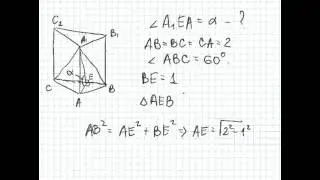 C₂
A₁
B₁
α
E
C
B
A
∠A₁EA = α - ?
AB = BC = CA = 2
∠ABC = 60°
BE = 1
△AEB
AB² = AE² + BE² ⇒ AE = √2² - 1²